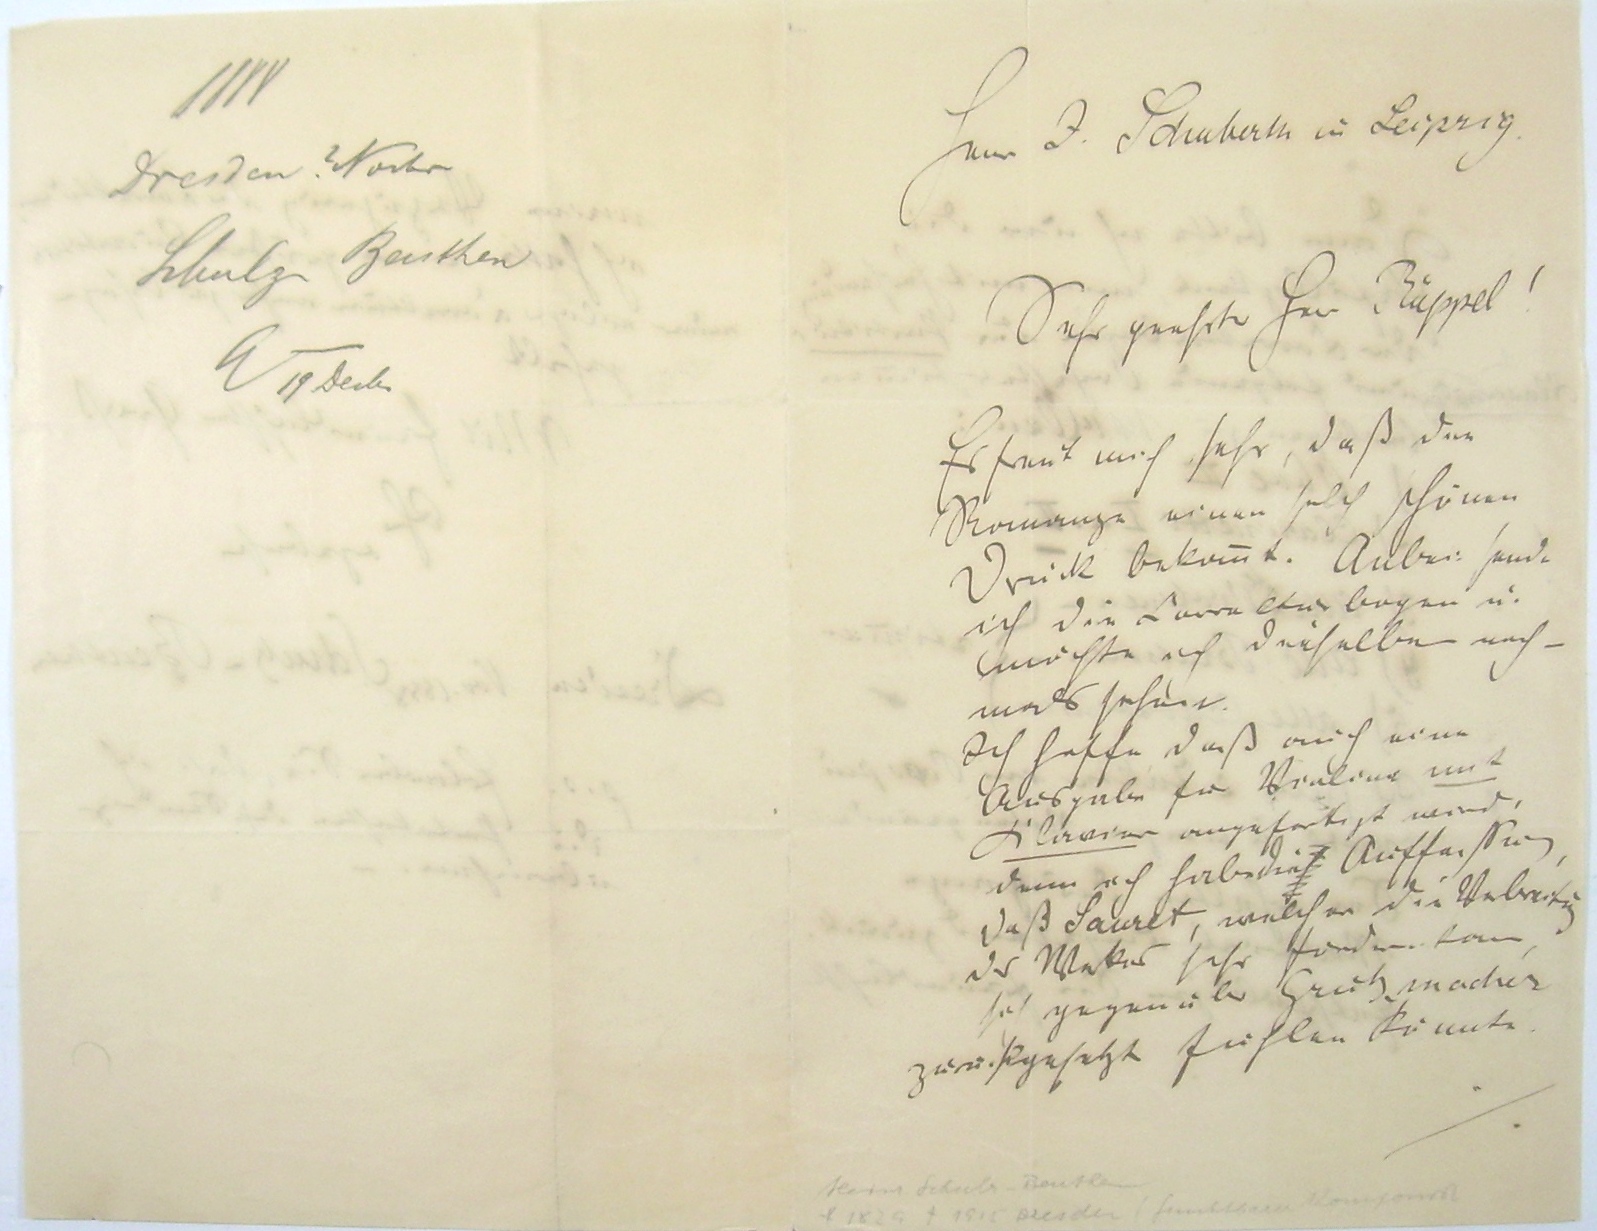 1888
Dresden Novbr
Schulz Beuthen
19 Decbr
Herr J. Schuberth in Leipzig.
Sehr geehrter Herr Rüppel!
Es freut mich sehr, daß die
Romanze einen solch schönen
Druck bekom̄t. Anbei sende
ich die Correcturbogen u.
möchte ich dieselben noch-
mals sehen.
Ich hoffe daß auch eine
Ausgabe für Violine mit
Klavier angefertigt wird,
denn ich habe die Auffassung,
daß Sauret, welcher die Verbreitung
des Werkes sehr fördern kann,
sich gegenüber Grützmacher
zurückgesetzt fühlen könnte.
./.
Heinr Schulz-Beuthen
† 1915 Dresden